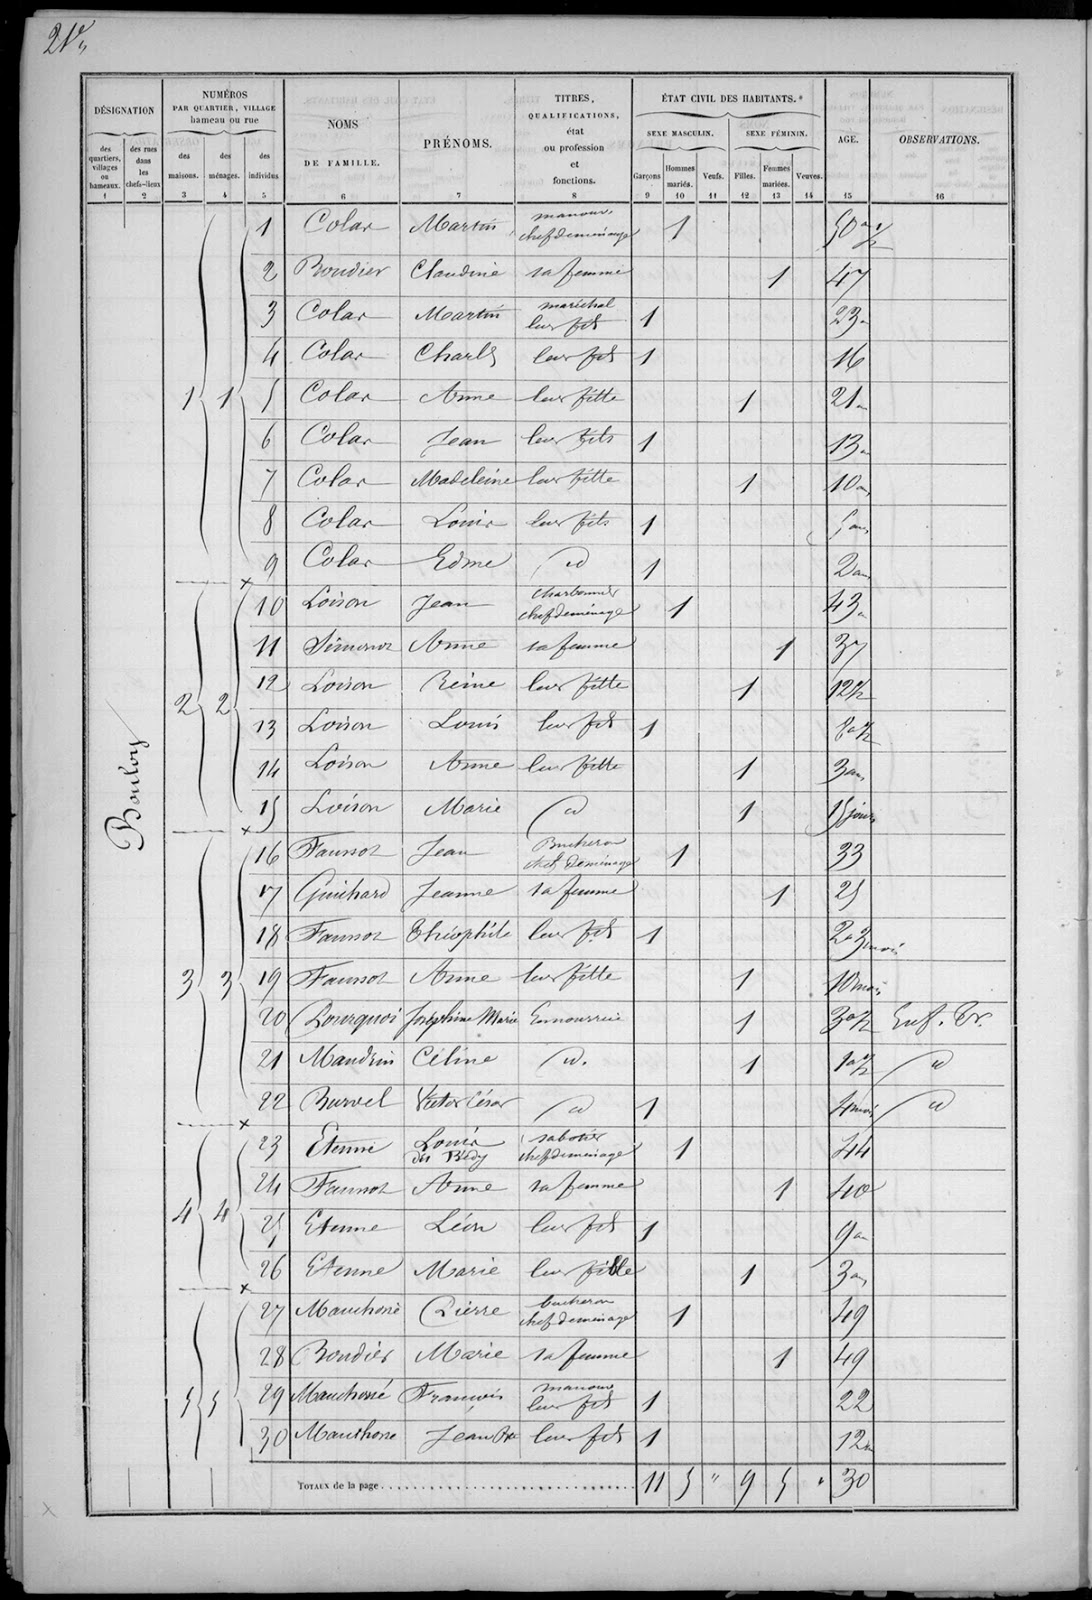 21e
DÉSIGNATION
NUMÉROS
PAR QUARTIER, VILLAGE
hameau ou rue
NOMS
DE FAMILLE.
PRÉNOMS.
TITRES,
QUALIFICATIONS,
état
ou profession
et
fonctions.
ÉTAT CIVIL DES HABITANTS.*
SEXE MASCULIN. SEXE FÉMININ.
AGE.
OBSERVATIONS.
des quartiers, villages ou hameaux.
des rues dans les chefs-lieux
des maisons.
des ménages.
des individus
Garçons Hommes mariés. Veufs. Filles. Femmes mariées. Veuves.
1 2 3 4 5 6 7 8 9 10 11 12 13 14 15 16
Bouloy
1 1
1 Colas Martin manouv. chef de ménage 1 50 a 1/2
2 Boudier Claudine sa femme 1 47
3 Colas Martin maréchal leur fils 1 23 a
4 Colas Charles leur fils 1 16
5 Colas Anne leur fille 1 21 a
6 Colas Jean leur fils 1 13 a
7 Colas Madeleine leur fille 1 10 ans
8 Colas Louis leur fils 1 5 ans
9 Colas Edme id 1 2 ans
2 2
10 Loison Jean charbonnier chef de ménage 1 43 a
11 Simonot Anne sa femme 1 37
12 Loison Reine leur fille 1 12 1/2
13 Loison Louis leur fils 1 8 a 1/2
14 Loison Anne leur fille 1 3 ans
15 Loison Marie id 1 15 jours
3 3
16 Faussot Jean Bucheron chef de ménage 1 33
17 Guichard Jeanne sa femme 1 25
18 Faussot Théophile leur fils 1 2 a 3 mois
19 Faussot Anne leur fille 1 10 mois
20 Bourquoi Joséphine Marie En nourrice 1 3 a 1/2 Enf. Tr.
21 Maudrin Céline id. 1 1 a 1/2 id
22 Burvel Victor César id 1 4 mois id
4 4
23 Etienne Louis dit Bédy sabotier chef de ménage 1 44
24 Faussot Anne sa femme 1 40
25 Etienne Léon leur fils 1 9 an
26 Etienne Marie leur fille 1 3 ans
5 5
27 Mauchossé Pierre bucheron chef de ménage 1 49
28 Boudier Marie sa femme 1 49
29 Mauchossé François manouv leur fils 1 22
30 Mauchossé Jean Bte leur fils 1 12 an
TOTAUX de la page 11 5 " 9 5 " 30